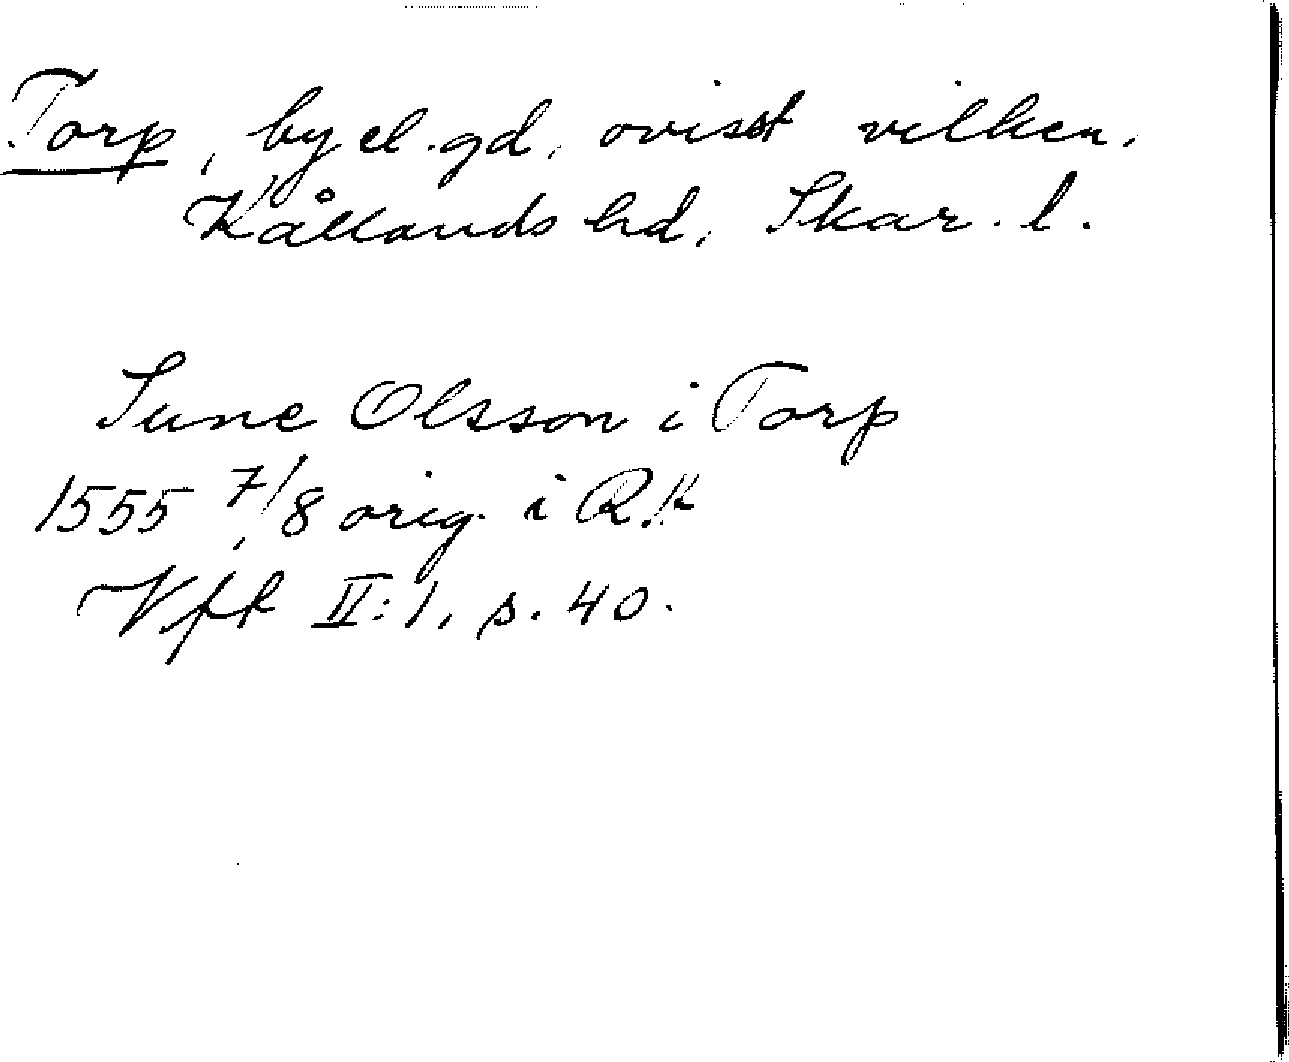 Torp, by el. gd, ovisst vilken.
Kållands hd, Skar. l.
Sune Olsson i Torp
1555 7/8 orig. i RA
Vfk II:1, s. 40.